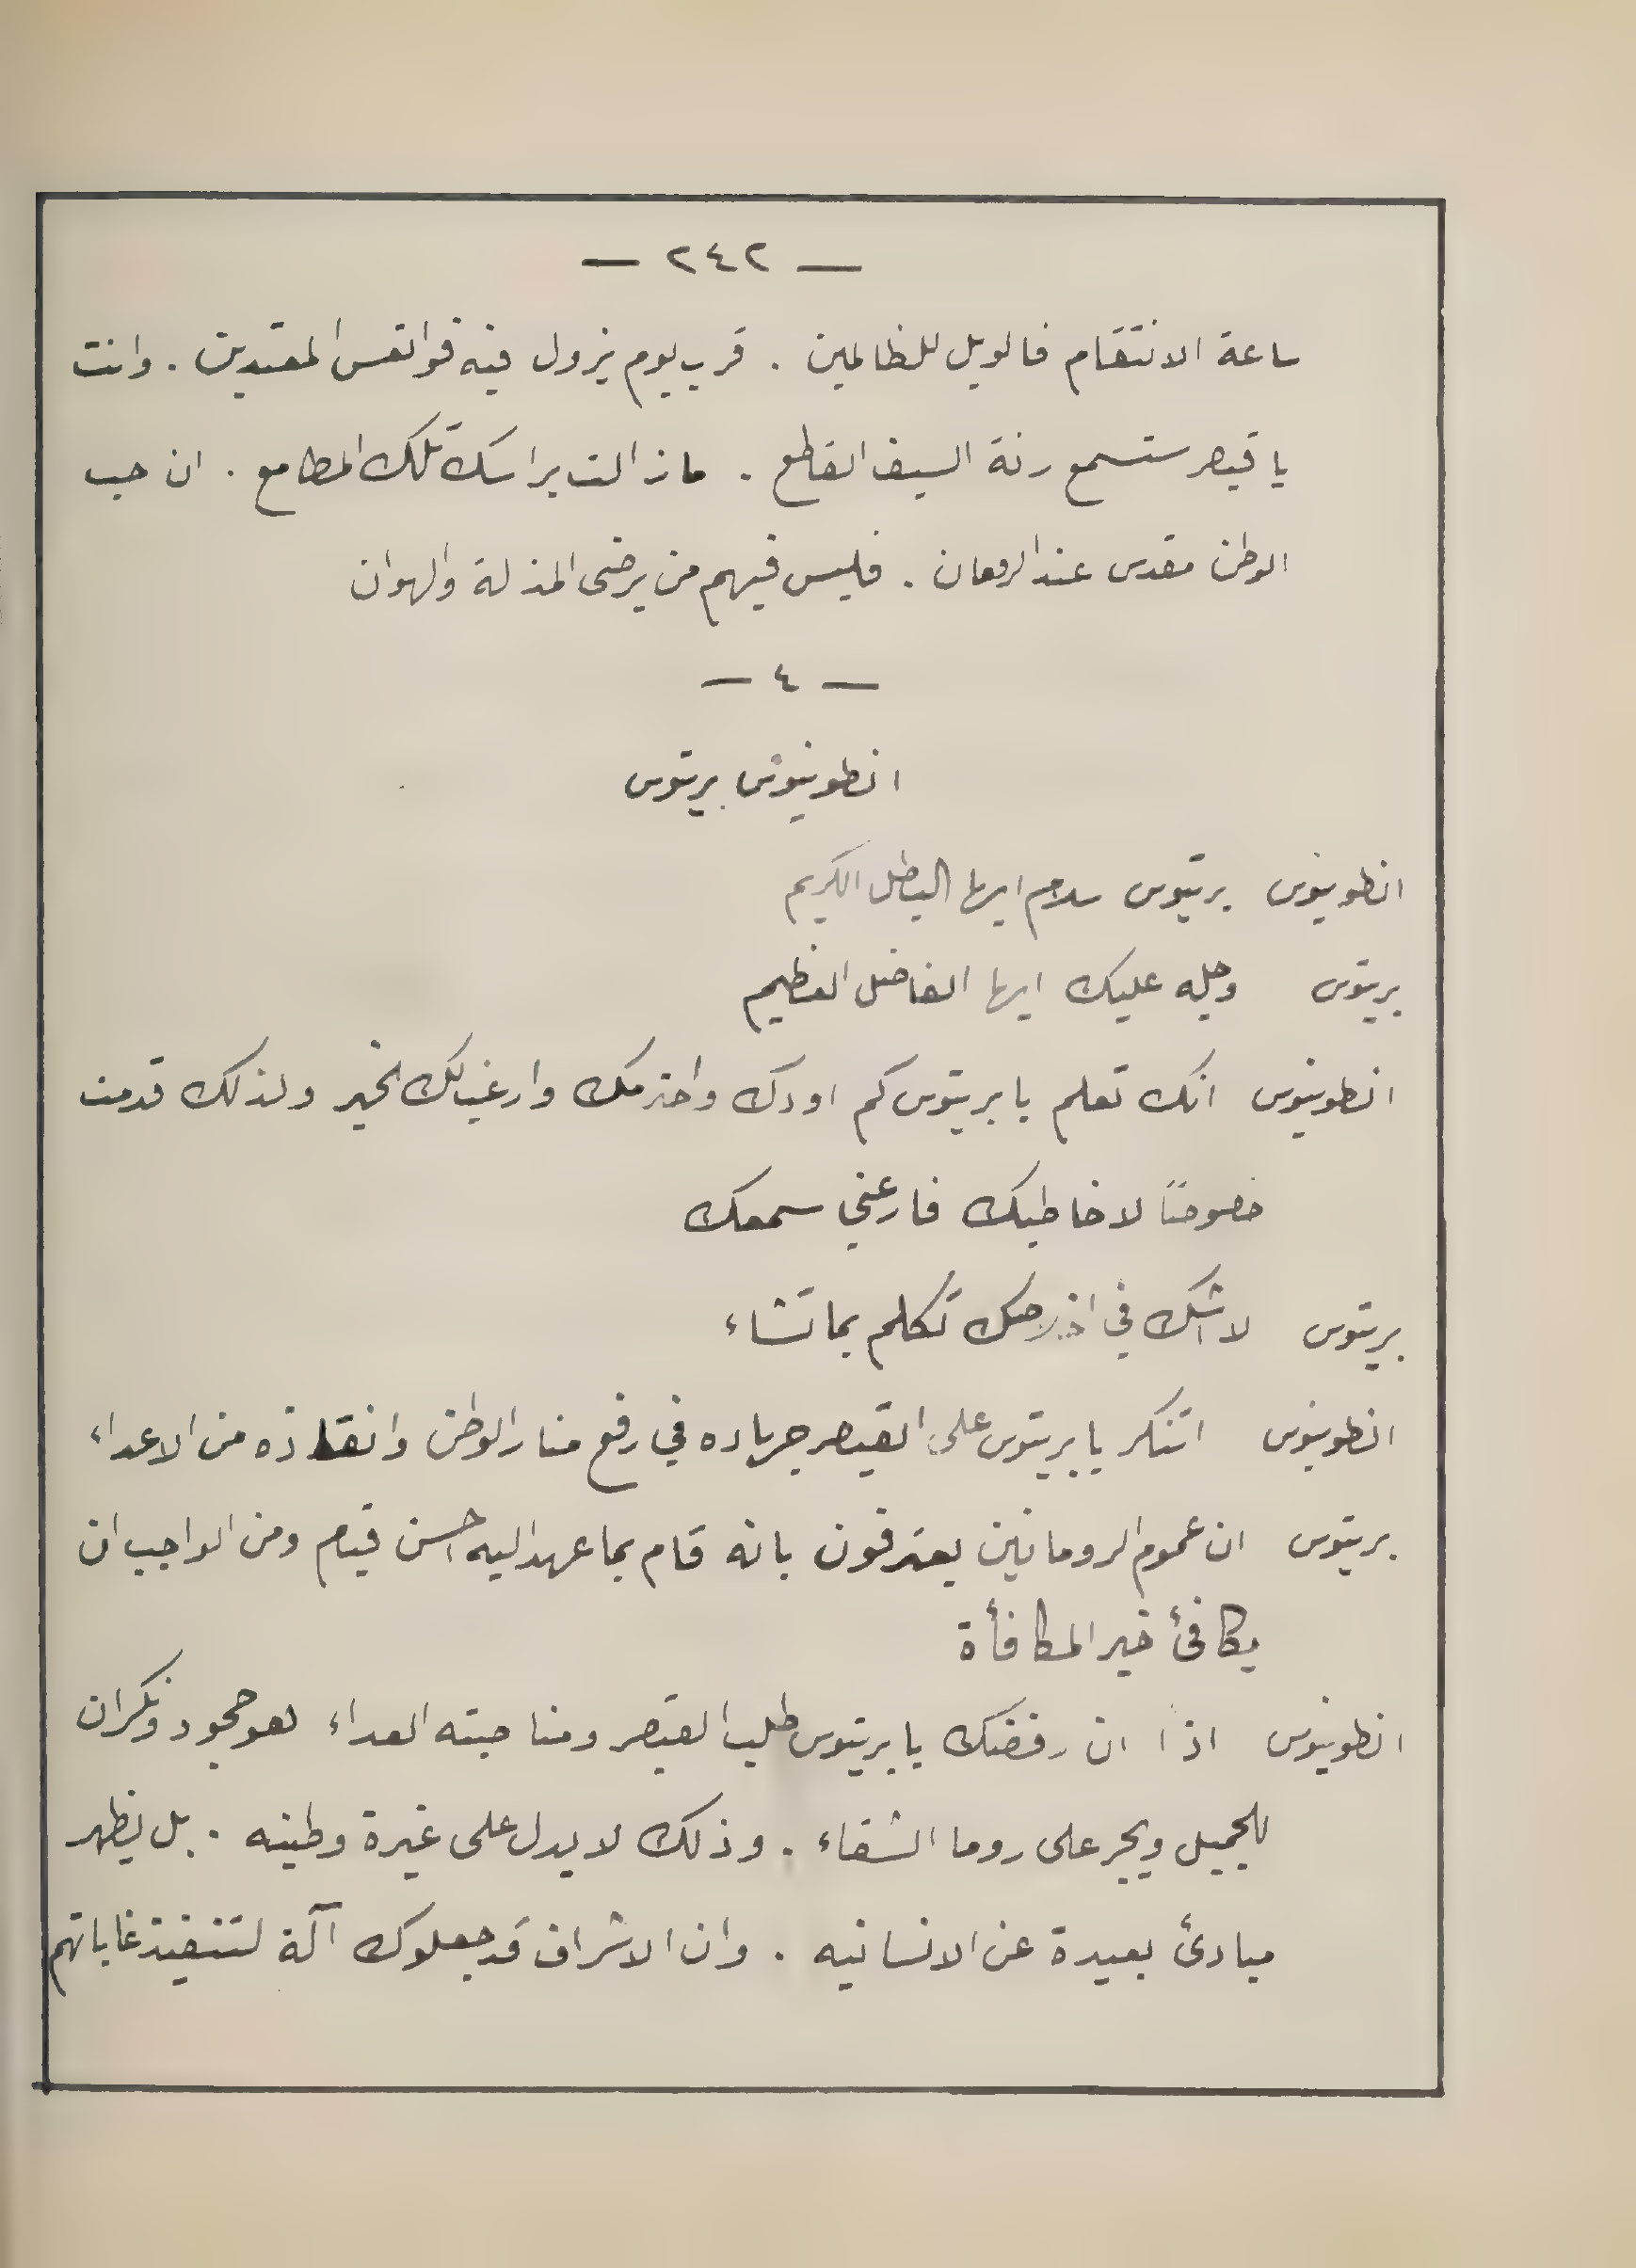 — ٢٤٢ —
ساعة الانتقام فالويل للظالمين . قرب يوم يزول فيه فوا تعس المعتدين . وانت
يا قيصر ستسمع رنة السيف القاطع . ما زالت براسك تلك المطامع . ان حب
الوطن مقدس عند الرومان . فليس فيهم من يرضى المذلة والهوان
— ٤ —
انطونيوس بريتوس
انطونيوس بريتوس سلام ايها البطل الكريم
بريتوس وعليك ايها الفاضل العظيم
انطونيوس انك تعلم يا بريتوس كم اودك واحترمك وارغب لك الخير ولذلك قدمت
خصوصًا لاخاطبك فارعني سمعك
بريتوس لا اشك في اخلاصك تكلم بما تشاء
انطونيوس اتنكر يا بريتوس على القيصر جهاده في رفع منار الوطن وانقاذه من الاعداء
بريتوس ان عموم الرومانيين يعترفون بانه قام بما عهد اليه احسن قيام ومن الواجب ان
يكافئ خير المكافأة
انطونيوس اذًا ان رفضك يا بريتوس طلب القيصر ومناصبته العداء لهو جحود ونكران
للجميل ويجر على روما الشقاء . وذلك لا يدل على غيرة وطنيه . بل يظهر
مبادئ بعيدة عن الانسانيه . وان الاشراف قد جعلوك آلة لتنفيذ غاياتهم